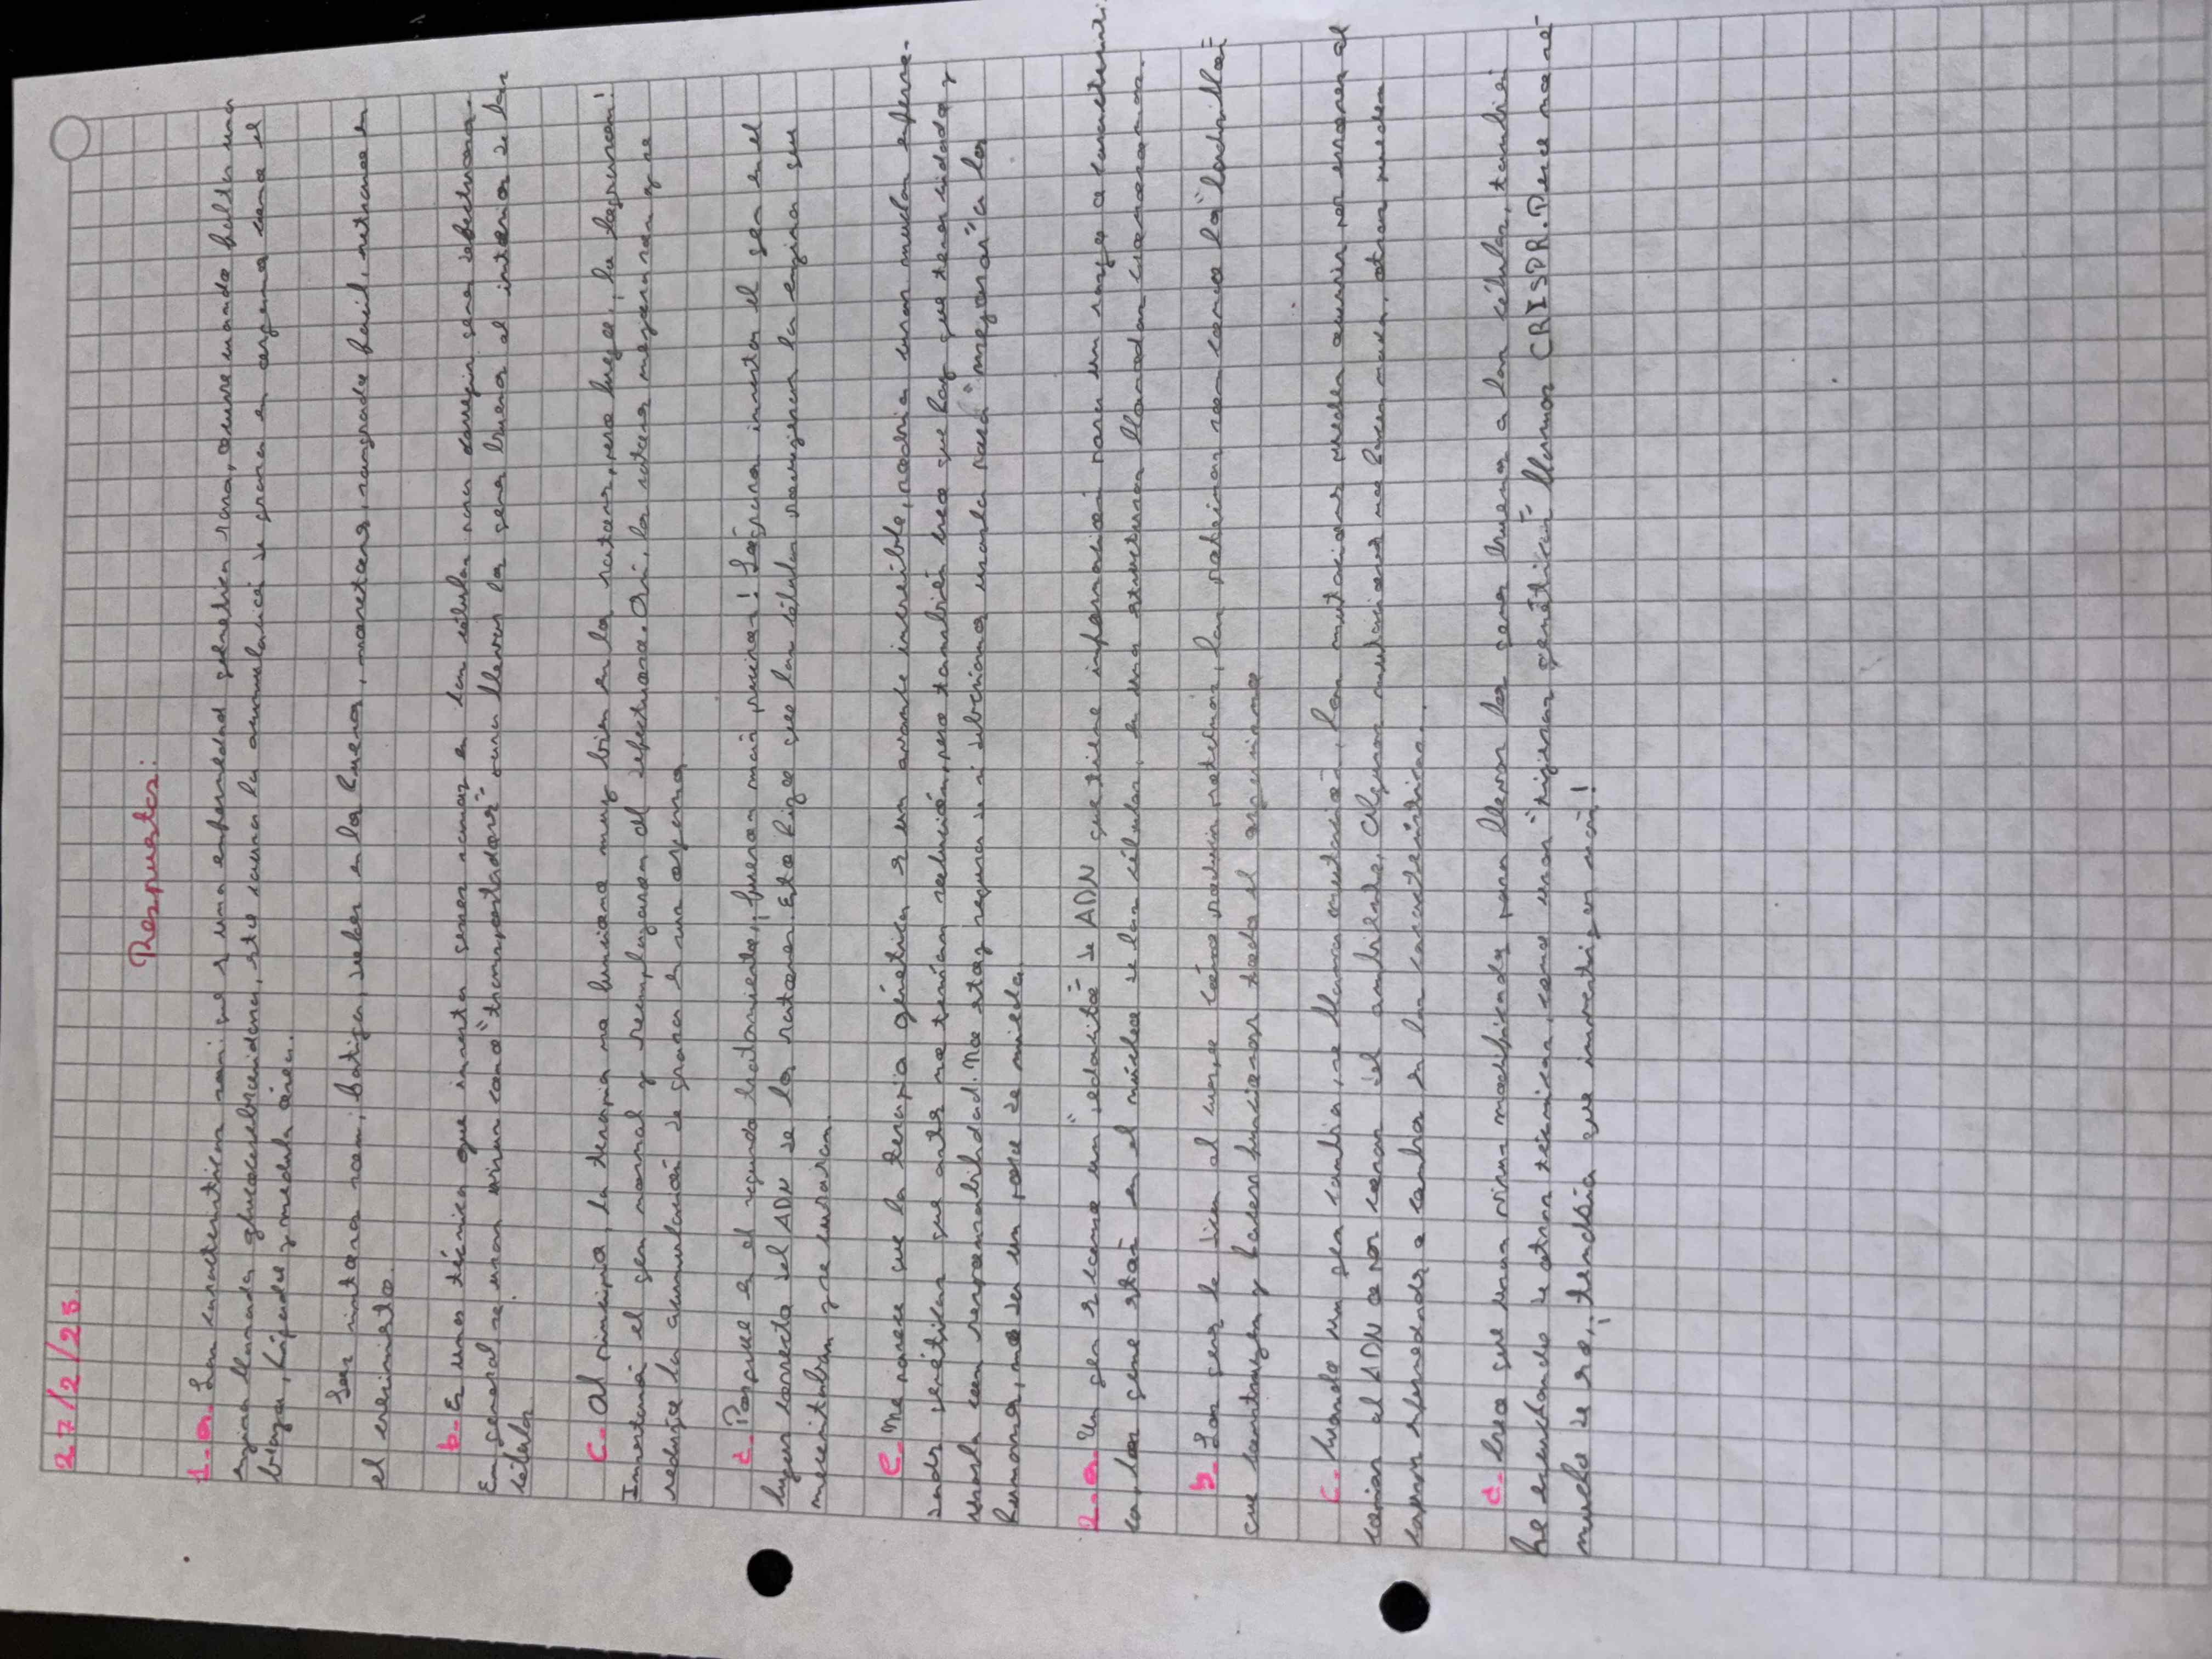 27/2/25.
Respuestas:
1-a- Las características son: que es una enfermedad genética rara, ocurre cuando falta una
enzima llamada glucocerebrosidasa, esto causa la acumulación de grasa en órganos como el
bazo, hígado y médula ósea.
Los síntomas son; fatiga, dolor en los huesos, moretones, sangrado fácil, retraso en
el crecimiento.
b- Es una técnica que inserta genes sanos en las células, para corregir genes defectuosos.
En general se usan virus como "transportadores" para llevar los genes buenos al interior de las
células.
C- Al principio, la terapia no funcionó muy bien en los ratones, pero luego, ¡lo lograron!
Insertaron el gen normal y reemplazaron al defectuoso. Así, los ratones mejoraron y se
redujo la acumulación de grasa en sus órganos.
d- Porque en el segundo tratamiento, ¡fueron más precisos! Lograron insertar el gen en el
lugar correcto del ADN de los ratones. Esto hizo que las células produjeran la enzima que
necesitaban y se curaran.
e- Me parece que la terapia génica es un avance increíble, podría curar muchas enferme-
dades genéticas que antes no tenían solución, pero también creo que hay que tener cuidado y
usarla con responsabilidad. No estoy segura de si deberíamos usarla para "mejorar" a los
humanos, me da un poco de miedo.
2-a- Un gen es como un "pedacito" de ADN que tiene información para un rasgo o característi-
ca, los genes están en el núcleo de las células, en unas estructuras llamadas cromosomas.
b- Los genes le dicen al cuerpo cómo producir proteínas, las proteínas son como los "ladrillos"
que construyen y hacen funcionar todo el organismo
c- Cuando un gen cambia, se llama mutación, las mutaciones pueden ocurrir por errores al
copiar el ADN o por cosas del ambiente. Algunas mutaciones no hacen nada, otras pueden
causar enfermedades o cambios en las características.
d- Creo que usan virus modificados para llevar los genes buenos a las células, también
he escuchado de otras técnicas, como usar "tijeras genéticas" llamadas CRISPR. Pero no sé
mucho de eso, ¡tendría que investigar más!